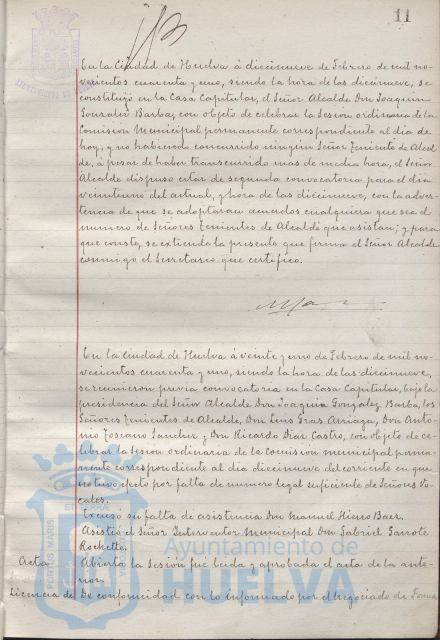 11
En la Ciudad de Huelva á diecinueve de Febrero de mil no-
vecientos cuarenta y uno, siendo la hora de las diecinueve, se
constituyó en la Casa Capitular, el Señor Alcalde Don Joaquin
Gonzalez Barba, con objeto de celebrar la Sesion ordinaria de la
Comision Municipal permanente correspondiente al dia de
hoy, y no habiendo concurrido ningún Señor Teniente de Alcal
de, á pesar de haber transcurrido mas de media hora, el Señor
Alcalde dispuso citar de segunda convocatoria para el dia
veintiuno del actual, y hora de las diecinueve, con la adver-
tencia de que se adoptaran acuerdos cualquiera que sea el
numero de Señores Tenientes de Alcalde que asistan; y para
que conste, se extiende la presente que firma el Señor Alcalde
conmigo el Secretario que certifico.
En la Ciudad de Huelva á veinte y uno de Febrero de mil no-
vecientos cuarenta y uno, siendo la hora de las diecinueve,
se reunieron previa convocatoria en la Casa Capitular, bajo la
presidencia del Señor Alcalde Don Joaquin Gonzalez Barba, los
Señores Tenientes de Alcalde, Don Luis Gras Arriaga, Don Anto-
nio Toscano Sanchez y Don Ricardo Diaz Castro, con objeto de ce-
lebrar la Sesion ordinaria de la Comision municipal perma-
nente correspondiente al dia diecinueve del corriente en que
no tuvo efecto por falta de numero legal suficiente de Señores Vo-
cales.
Excusó su falta de asistencia Don Manuel Hierro Baez.
Asistió el Señor Interventor Municipal Don Gabriel Garrote
Rochette.
Acta Abierta la Sesion fue leida y aprobada el acta de la ante-
rior.
Licencia de De conformidad con lo informado por el Negociado de Fomen
PORTUS MARIS ET TERRAE
Ayuntamiento de
HUELVA